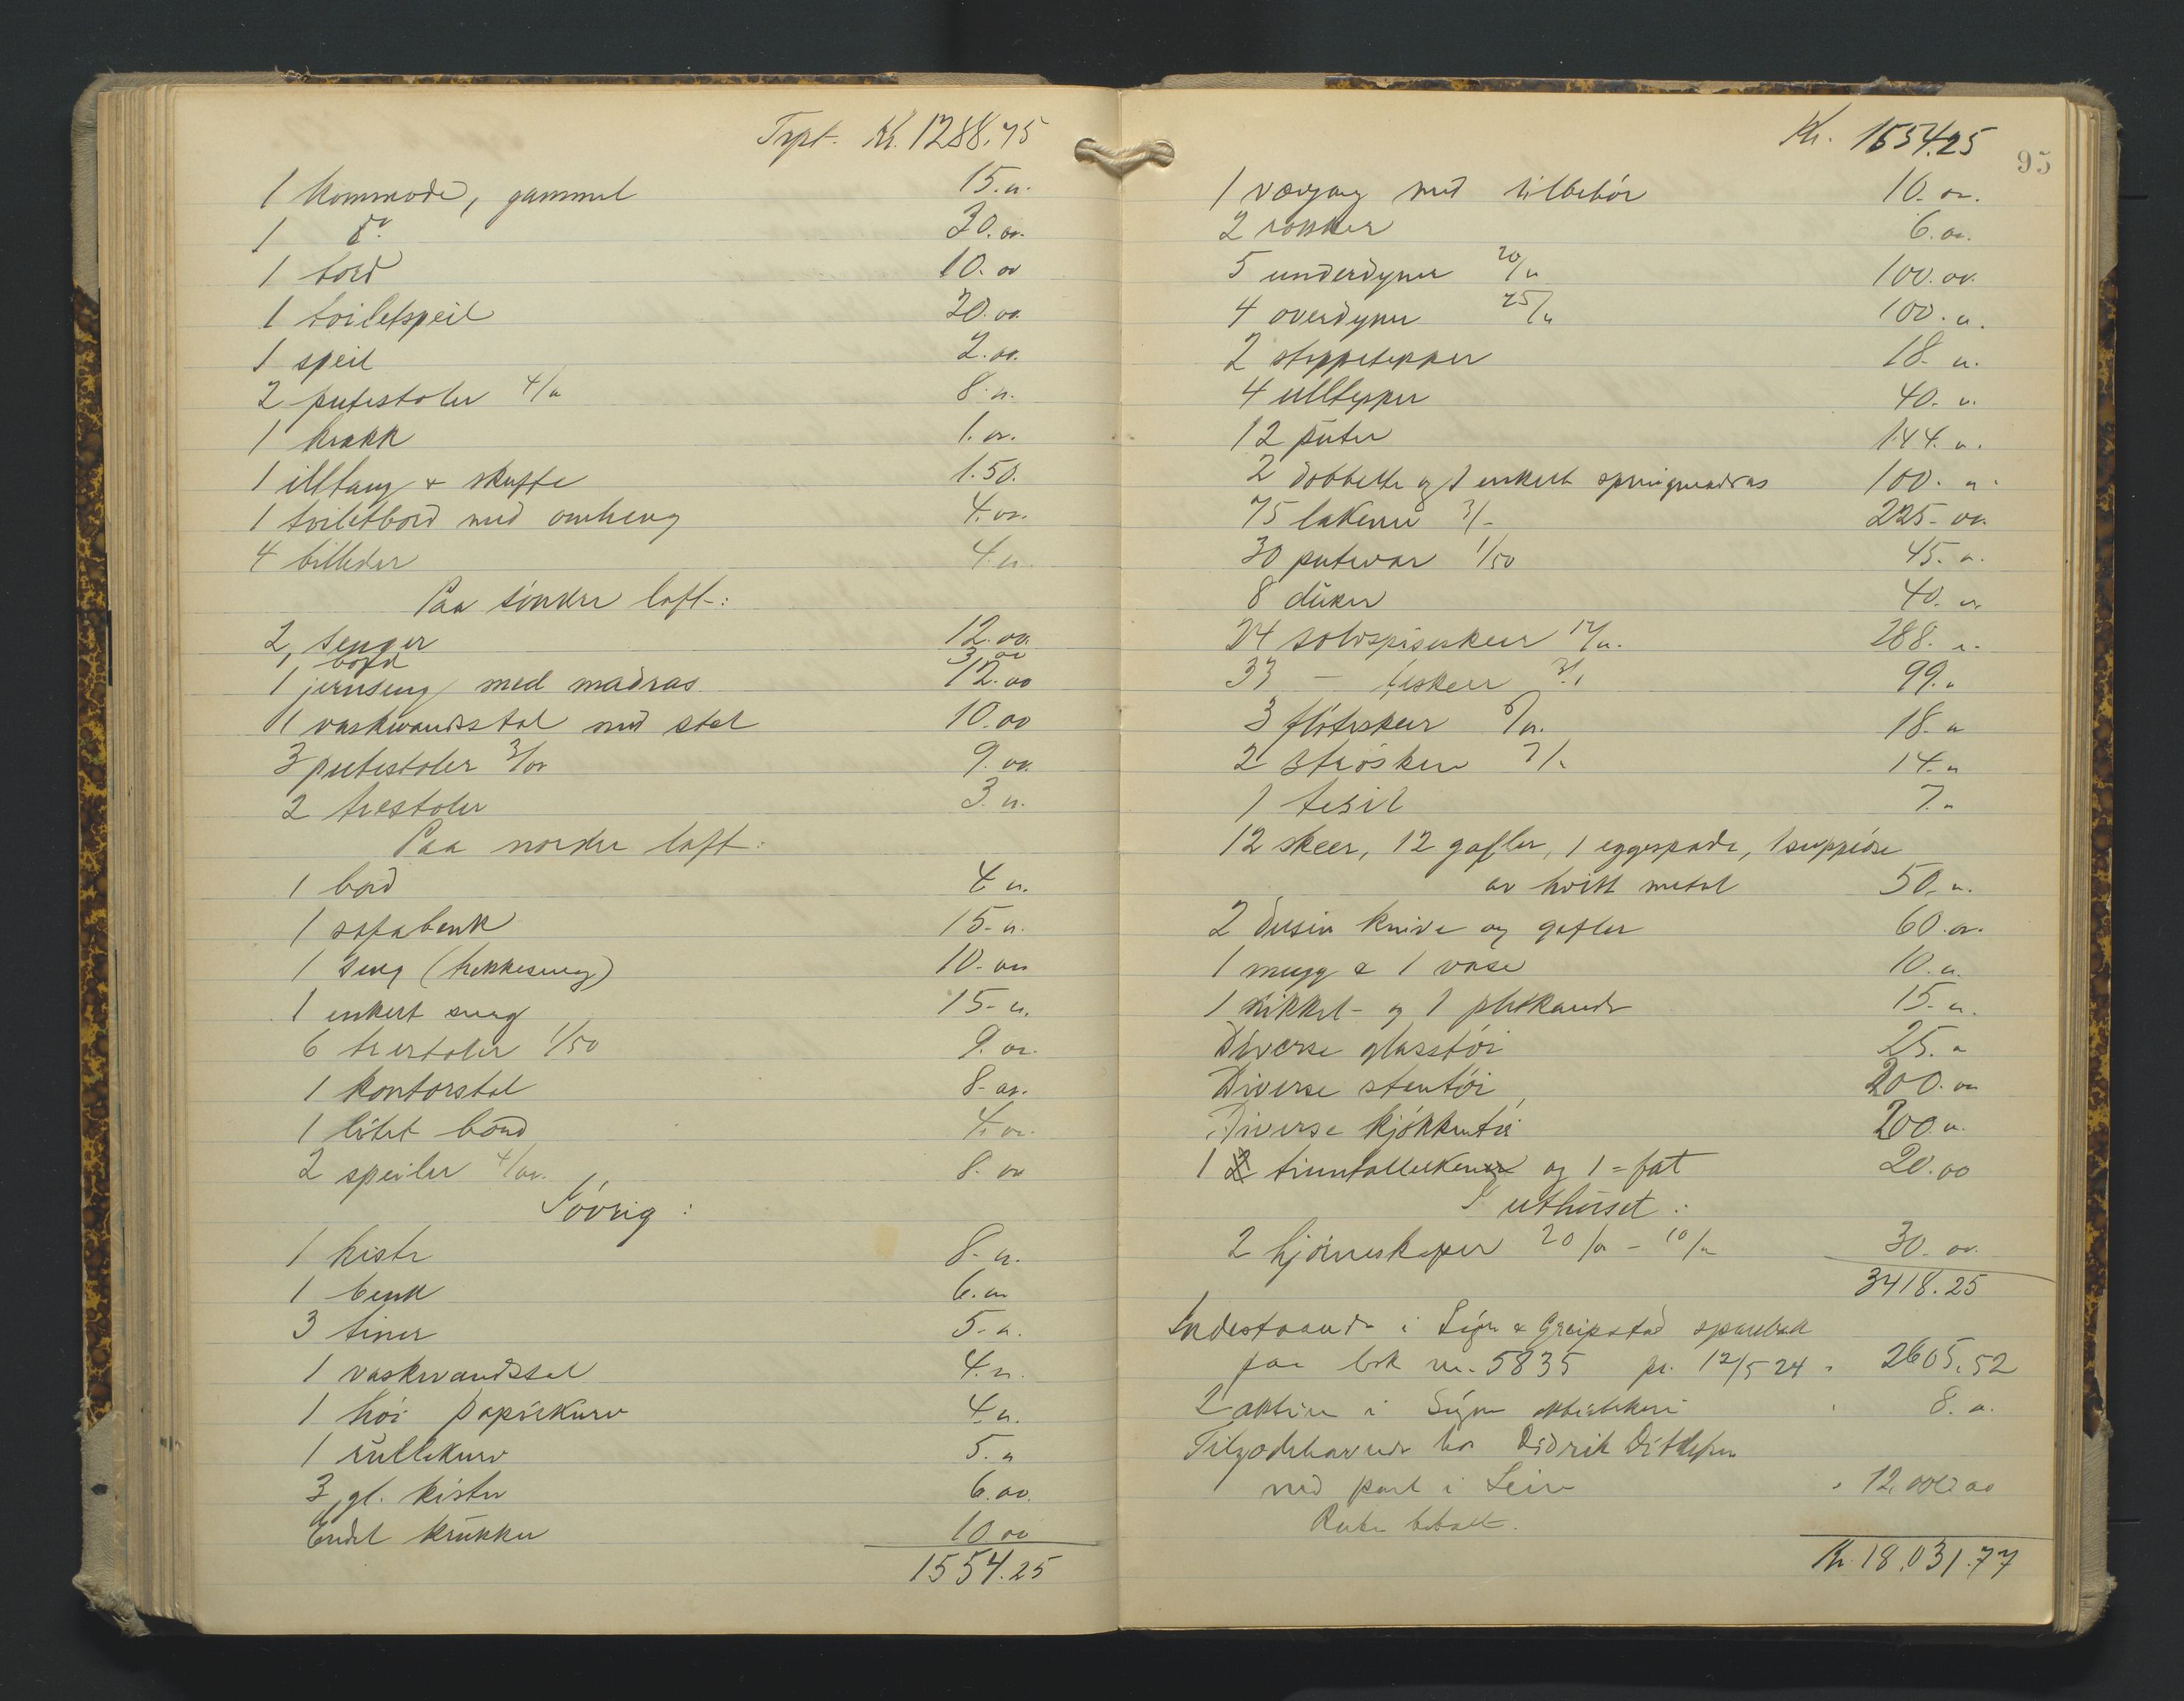 Trpt. Kr. 1288.75
1 kommode, gammel 15.00
1 do. 30.00
1 bord 10.00
1 toiletspeil 20.00
1 speil 2.00
2 putestoler 4/00 8.00
1 krakk 1.00
1 illtang & skuffe 1.50.
1 toiletbord med omheng 4.00
4 billeder 4.00
Paa søndre loft:
2 senger 12.00
1 bord 3.00
1 jernseng med madras 12.00
1 vaskvandsstol med stel 10.00
3 putestoler 3/00 9.00
2 trestoler 3.00
Paa nordre loft:
1 bord 4.00
1 sofabenk 15.00
1 seng (trekkeseng) 10.00
1 enkelt seng 15.00
6 trestoler 1/50 9.00
1 kontorstol 8.00
1 litet bord 4.00
2 speiler 4/00. 8.00
Iøvrig:
1 kiste 8.00
1 benk 6.00
3 tiner 5.00
1 vaskvandsstol 4.00
1 høi papirkurv 4.00
1 rullekurv 5.00
3 gl. kister 6.00
Endel krukker 10.00
1554.25
95
Kr. 1554.25
1 med tilbehør 10.00
2 rokker 6.00
5 underdyner 20/00 100.00
4 overdyner 25/00 100.00
2 steppetepper 18.00
4 ulltepper 40.00
12 puter 144.00
2 dobbelte og 1 enkelt springmadras 100.00
75 lakener 3/- 225.00
30 putevar 1/50 45.00
8 duker 40.00
24 sølvspiseskeer 12/00. 288.00
33 — teskeer 3/ 99.00
3 fløteskeer 6/00. 18.00
2 strøskeer 7/00 14.00
1 tesil 7.00
12 skeer, 12 gafler, 1 eggespade, 1 suppeøse
av hvitt metal 50.00
2 dusin knive og gafler 60.00
1 mugg & 1 vase 10.00
1 nikkel- og 1 pletkande 15.00
Diverse glasstøi 25.00
Diverse stentøi 200.00
Diverse kjøkkentøi 200.00
1 2 tinntallerkener og 1 = fat 20.00
I uthuset:
2 hjørneskaper 20/00 - 10/00 30.00
3418.25
Indestaaende i Søgne & Greipstad sparebank
paa bok nr. 5835 pr. 12/5 24 " 2605.52
2 aktier i Søgne " 8.00
Tilgodehavende hos Didrik Ditlefsen
med pant i " 12.000.00
Rente betalt.
Kr. 18.031.77